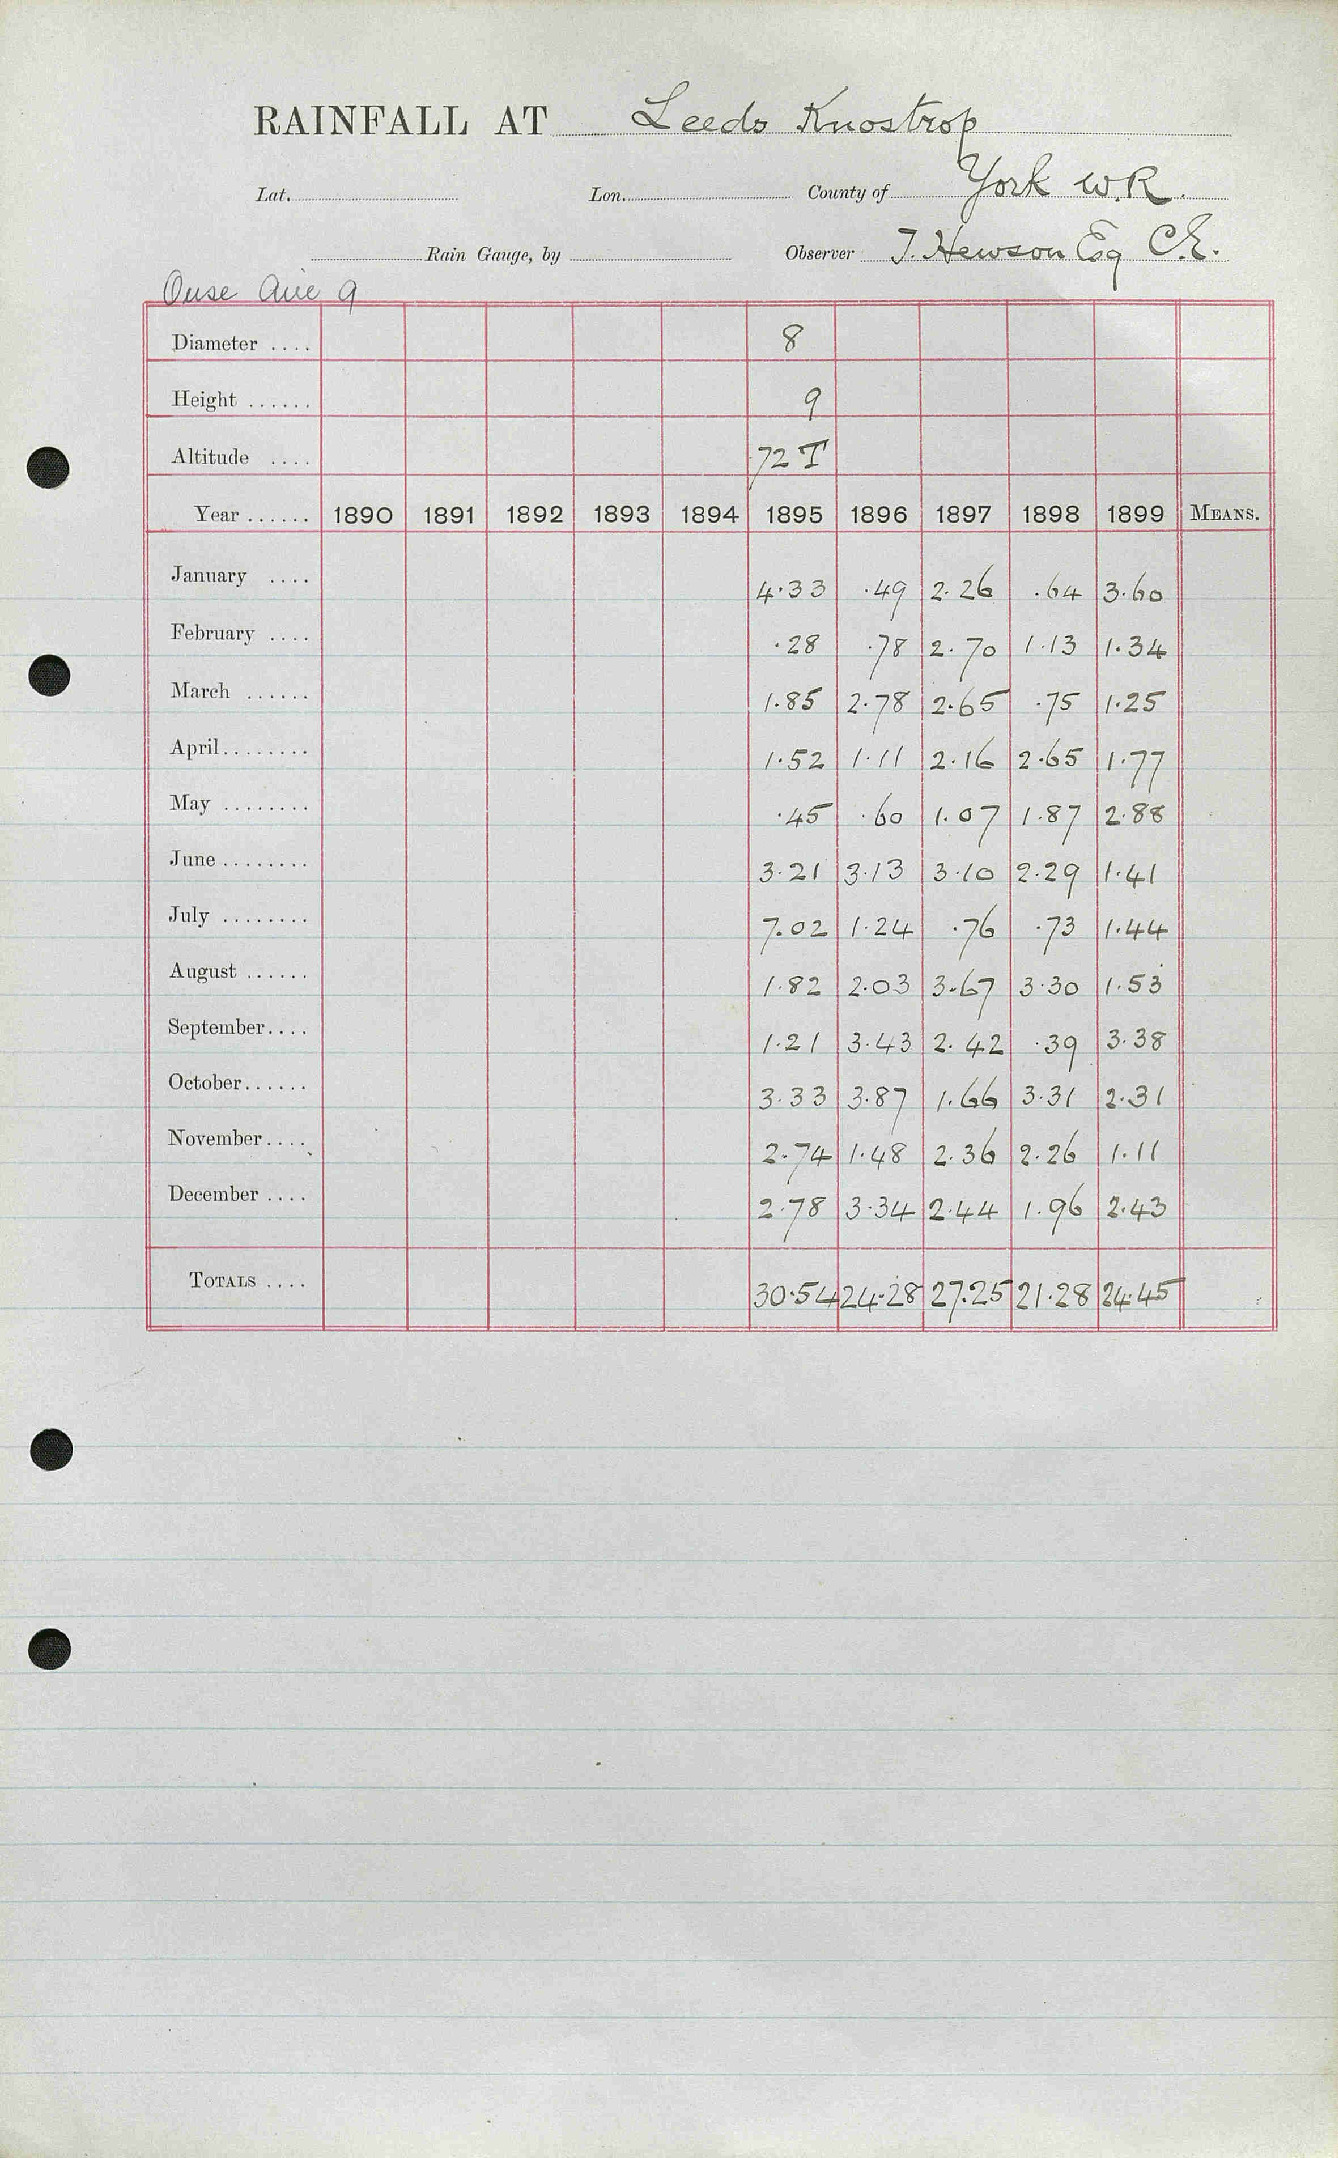 RAINFALL AT Leeds Knostrop
Lat. Lon. County of York W.R.
Rain Gauge, by Observer T. Hewson Esq C.E.
Ouse Aire 9
Diameter .... 8
Height ...... 9
Altitude .... 72 T
Year ...... 1890 1891 1892 1893 1894 1895 1896 1897 1898 1899 MEANS.
January .... 4.33 .49 2.26 .64 3.60
February .... .28 .78 2.70 1.13 1.34
March ...... 1.85 2.78 2.65 .75 1.25
April........ 1.52 1.11 2.16 2.65 1.77
May ........ .45 .60 1.07 1.87 2.88
June ........ 3.21 3.13 3.10 2.29 1.41
July ........ 7.02 1.24 .76 .73 1.44
August ...... 1.82 2.03 3.67 3.30 1.53
September.... 1.21 3.43 2.42 .39 3.38
October...... 3.33 3.87 1.66 3.31 2.31
November.... 2.74 1.48 2.36 2.26 1.11
December .... 2.78 3.34 2.44 1.96 2.43
TOTALS .... 30.54 24.28 27.25 21.28 24.45